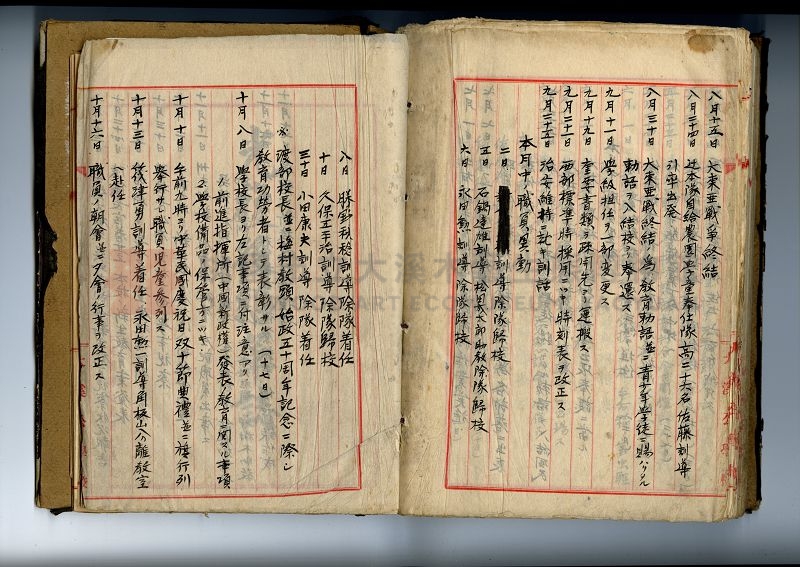 八月十五日 大東亜戰爭終結
八月二十四日 辻本隊自給農園學童奉仕隊(高二十六名 佐藤訓導
引率出発
八月三十日 大東亜戰終結ノ為教育勅語並ニ青少年學徒ニ賜ハリタル
勅語ヲ入結校ヲ奉還ス
九月十一日 學級担任ノ一部変更ス
九月十九日 重要書類ヲ疎開先ヨリ運搬ス
九月二十一日 西部標準時採用ニツキ時刻表ヲ改正ス
九月二十五日 治安維持ニ就キ訓話
本月中ノ職員異動
二日 訓導除隊歸校
五日 石鍋達雄訓導 松 太郎助教除隊歸校
六日 永田勳訓導除隊歸校
八日 勝野利 訓導除隊着任
十日 久保五王治訓導除隊歸校
三十日 小田康夫訓導除隊着任
渡部校長並ニ梅村教頭始政五十周年記念ニ際シ
教育功勞者トシテ表彰サル(十七日)
十月八日 學校長ヨリ左記事項ニ付注意アリ
1.前進指揮所(中國新政權)発表教育ニ関スル事項
2.學校備品ノ保管ニツキ
十月十日 午前九時ヨリ中華民國慶祝日双十節典禮並ニ 行列
舉行サレ職員児童参列ス
十月十三日 後津勇訓導着任、永田 一訓導角板山入 離教室
ヘ赴任
十月十六日 職員ノ朝會並ニ夕會ノ行事ヲ改正ス